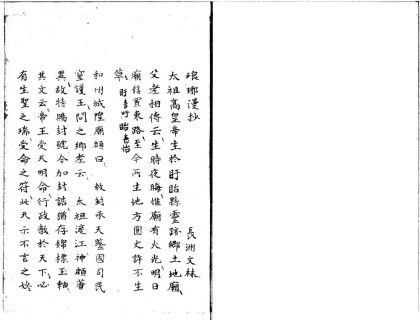 琅琊漫抄
長洲文林
太祖高皇帝生於盱眙縣靈蹟鄉土地廟
父老相傳云生時夜晦惟廟有火光明日
廟徙置東路至今所生地方圓丈許不生
草 盱音吁眙音怡
和州城隍廟額曰 敕封承天鑒國司民
靈護王問之鄉老云 太祖渡江神顯著
異故特賜封號今加封誥猶存錦標玉軸
其文云帝王受天明命行政教於天下必
有生聖之瑞受命之符此天示不言之妙